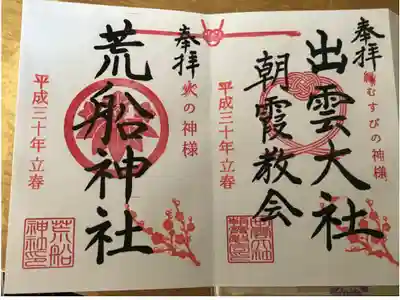 奉拝
縁むすびの神様
出雲大社
朝霞教会
平成三十年立春
奉拝
火の神様
荒船神社
平成三十年立春
荒船
神社印